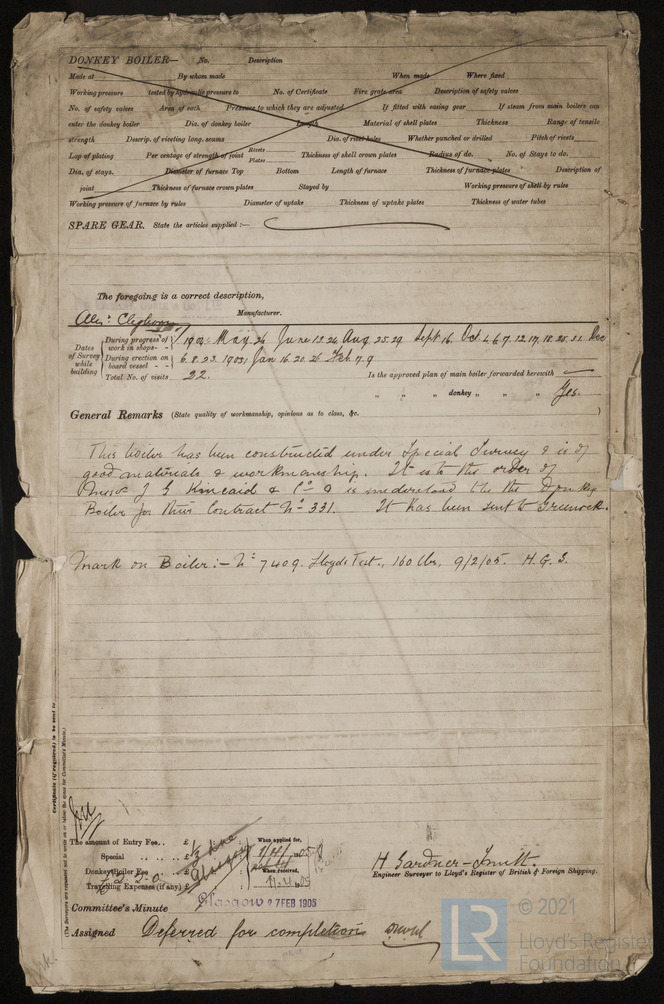 DONKEY BOILER— No. Description
Made at By whom made When made Where fixed
Working pressure tested by hydraulic pressure to No. of Certificate Fire grate area Description of safety valves
No. of safety valves Area of each Pressure to which they are adjusted If fitted with easing gear If steam from main boilers can
enter the donkey boiler Dia. of donkey boiler Length Material of shell plates Thickness Range of tensile
strength Descrip. of riveting long. seams Dia. of rivet holes Whether punched or drilled Pitch of rivets
Lap of plating Per centage of strength of joint Rivets Plates Thickness of shell crown plates Radius of do. No. of Stays to do.
Dia. of stays. Diameter of furnace Top Bottom Length of furnace Thickness of furnace plates Description of
joint Thickness of furnace crown plates Stayed by Working pressure of shell by rules
Working pressure of furnace by rules Diameter of uptake Thickness of uptake plates Thickness of water tubes
SPARE GEAR. State the articles supplied :—
The foregoing is a correct description,
Manufacturer.
Dates of Survey while building
During progress of work in shops - - 1904: May 26 June 13. 24 Aug 25. 29 Sept 16. Oct 4. 6. 7. 12. 17. 18. 25. 31. Dec
During erection on board vessel - - 6. 8. 23. 1905: Jan 16. 20. 26 Feb 7. 9
Total No. of visits 22. Is the approved plan of main boiler forwarded herewith
" " " donkey " " " Yes.
General Remarks (State quality of workmanship, opinions as to class, &c.
This boiler has been constructed under Special Survey & is of
good materials & workmanship. It is to the order of
Messrs J G Kincaid & Co & is understood to be the Donkey
Boiler for their Contract No 331. It has been sent to Greenock.
Mark on Boiler:— No 7409. Lloyds Test., 160 lbs, 9/2/05. H. G. S.
Certificate (if required) to be sent to
(The Surveyors are requested not to write on or below the space for Committee's Minute.)
The amount of Entry Fee.. £ When applied for,
Special .. .. .. £
Donkey Boiler Fee £ When received,
Travelling Expenses (if any) £
H Gardner-Smith.
Engineer Surveyor to Lloyd's Register of British & Foreign Shipping.
Committee's Minute Glasgow 27 FEB 1905
Assigned Deferred for completion
LR © 2021
Lloyd's Register
Foundation